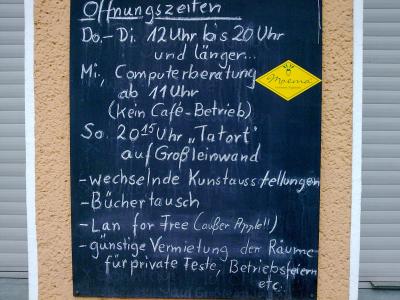 Öffnungszeiten
Do.-Di. 12 Uhr bis 20 Uhr
und länger...
Mi., Computerberatung
ab 11 Uhr
(kein Café-Betrieb)
So. 20 15 Uhr "Tatort"
auf Großleinwand
-wechselnde Kunstausstellungen
-Büchertausch
-Lan for free (außer Apple!!)
-günstige Vermietung der Räume
für private Feste, Betriebsfeiern
etc.